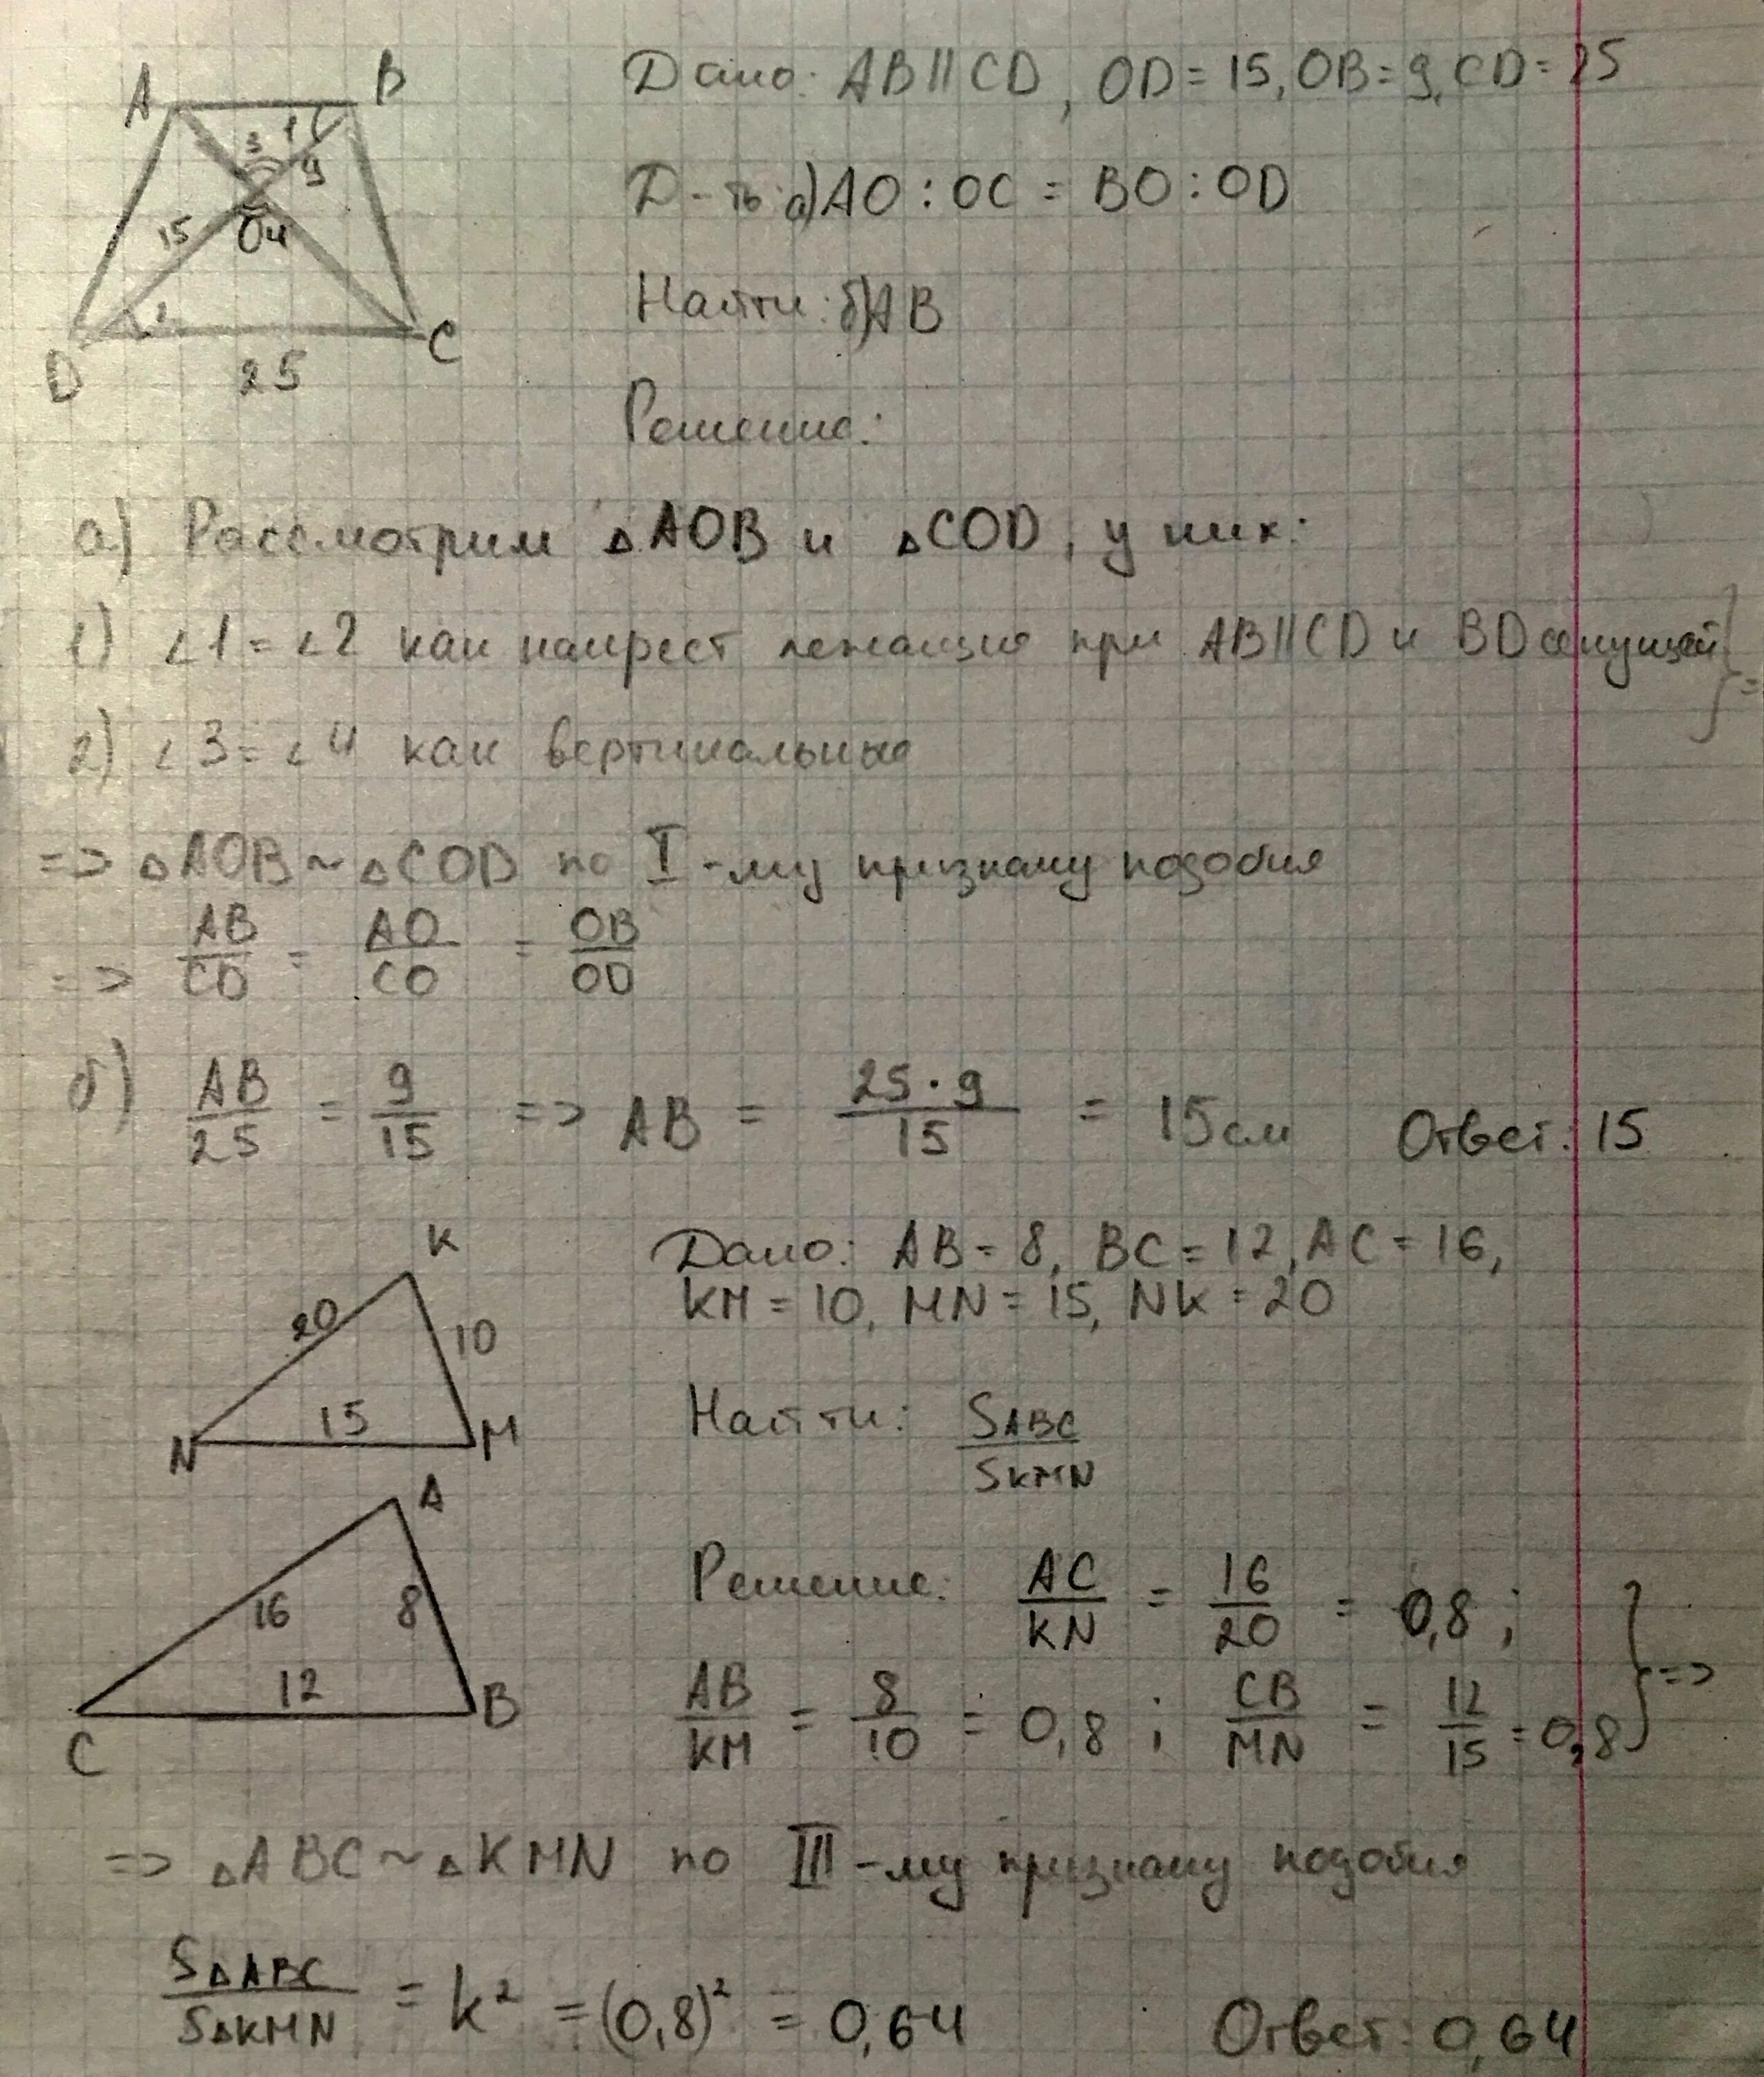 A B
3 1 9
15 O 4
2
D 25 C
Дано: AB || CD, OD = 15, OB = 9, CD = 25
Д-ть: а) AO : OC = BO : OD
Найти: б) AB
Решение:
а) Рассмотрим △AOB и △COD, у них:
1) ∠1 = ∠2 как накрест лежащие при AB || CD и BD секущей } =
2) ∠3 = ∠4 как вертикальные
=> △AOB ~ △COD по I-му признаку подобия
=> AB/CD = AO/CO = OB/OD
б) AB/25 = 9/15 => AB = 25·9/15 = 15 см Ответ: 15
K
20 10
15
N M
Дано: AB = 8, BC = 12, AC = 16,
KM = 10, MN = 15, NK = 20
Найти: SABC/SKMN
A
16 8
12
C B
Решение: AC/KN = 16/20 = 0,8 ;
AB/KM = 8/10 = 0,8 ; CB/MN = 12/15 = 0,8 } =>
=> △ABC ~ △KMN по III-му признаку подобия
S△ABC/S△KMN = k² = (0,8)² = 0,64 Ответ: 0,64